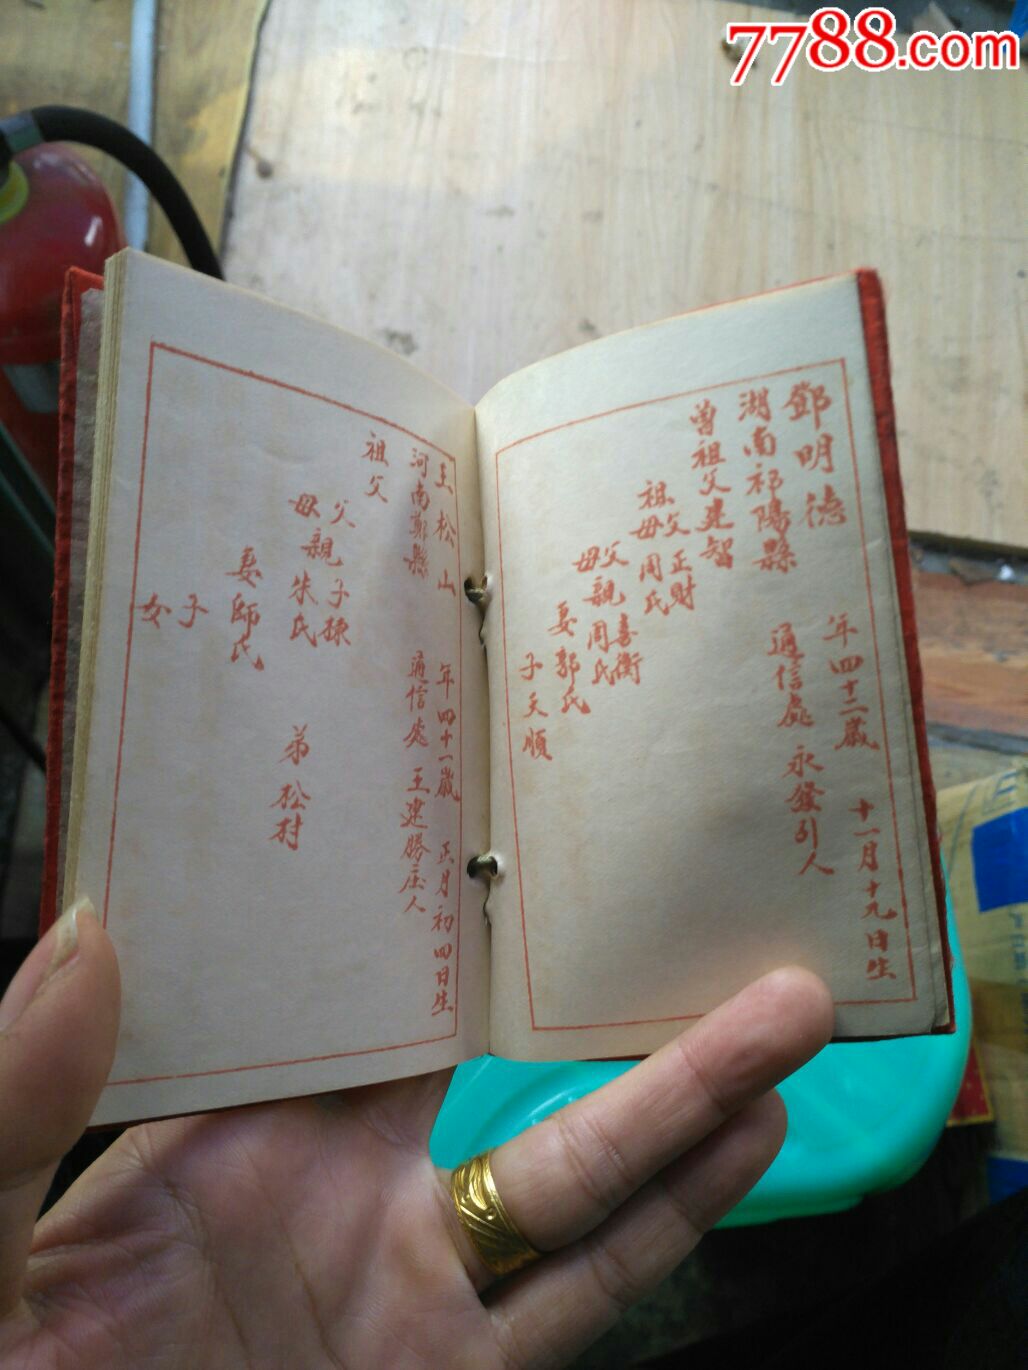 7788.com
鄧明德 年四十二歲 十一月十九日生
湖南祁陽縣 通信處 永發引人
曾祖父建智
祖父 正財
祖母 周氏
父親 喜衡
母親 周氏
妻郭氏
子天順
王松山 年四十一歲 正月初四日生
河南鄭縣 通信處 王建勝庄人
祖父
父親子
母親朱氏 弟松村
妻師氏
子
女